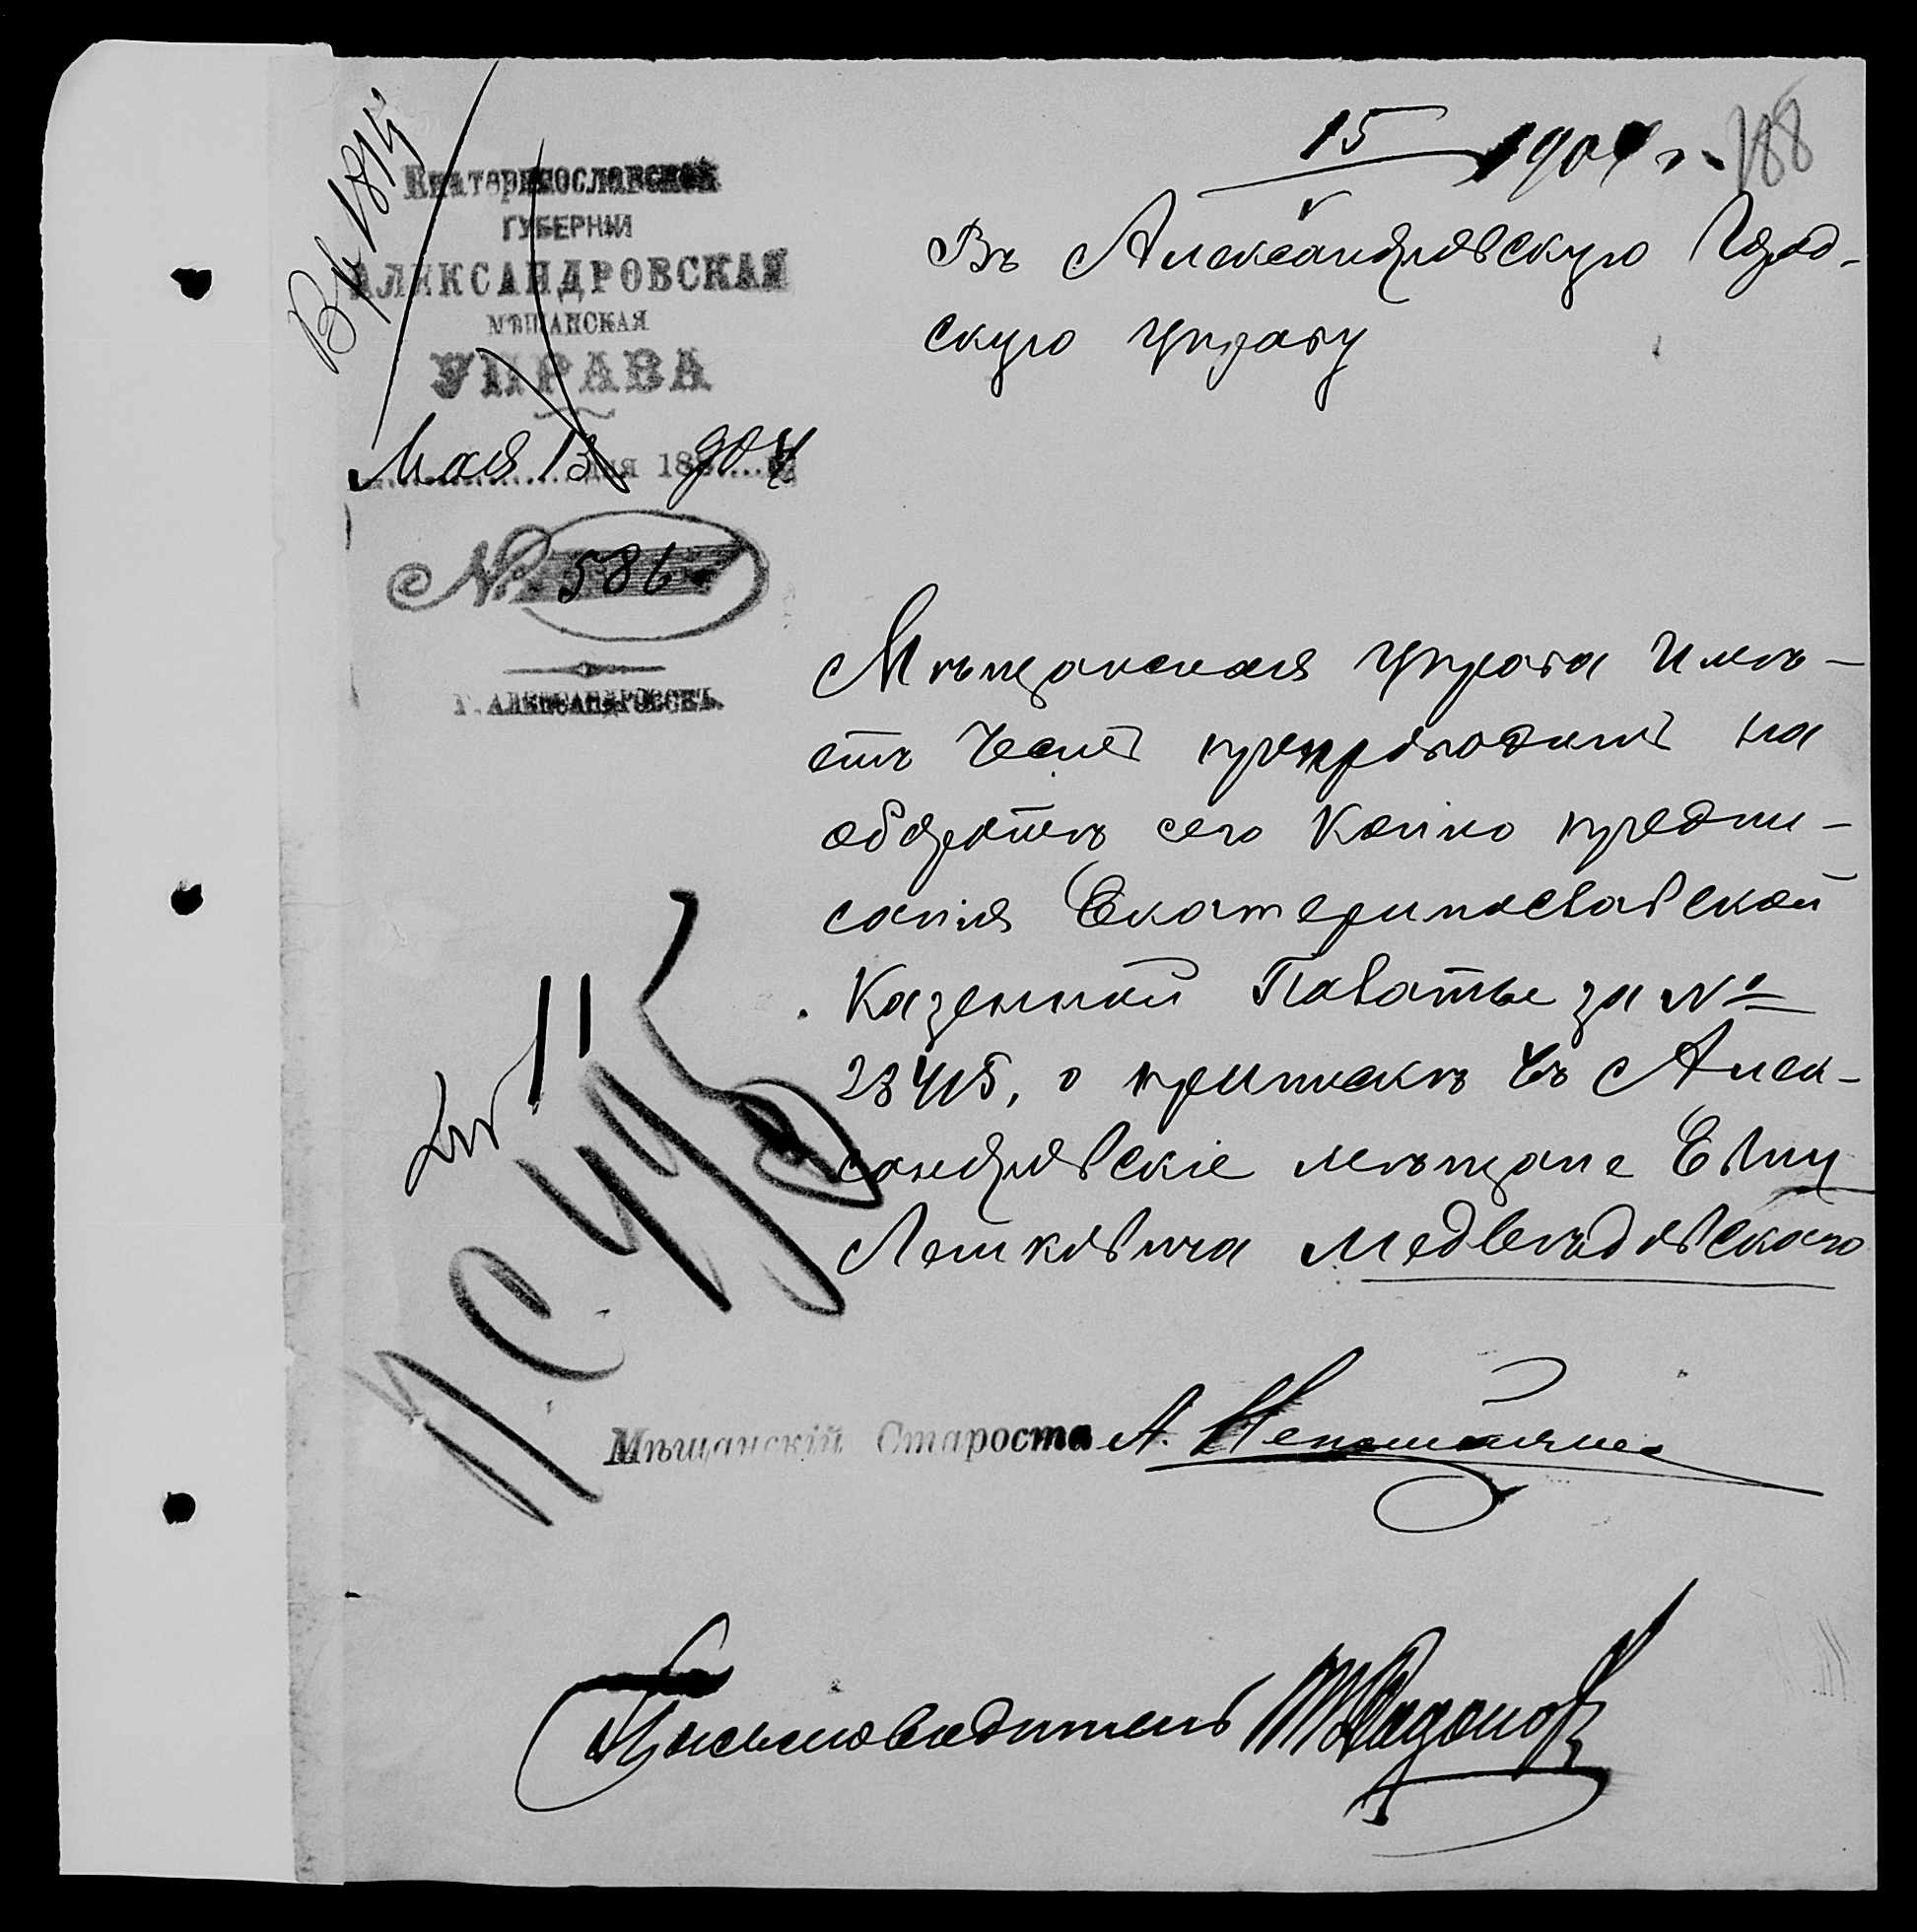 188
15 1904 г.
V
Вх 1814
Екатеринославской
ГУБЕРНІИ
АЛЕКСАНДРОВСКАЯ
МѢЩАНСКАЯ
УПРАВА
Мая 13 дня 188 904
№ 586
Г. АЛЕКСАНДРОВСКЪ.
Въ Александровскую Город-
скую Управу
Мѣщанская Управа имѣ-
етъ честь препроводить на
оборотѣ сего копію предпи-
санія Екатеринославской
Казенной Палаты за №
23415, о припискѣ въ Алек-
сандровскіе мѣщане
Медвѣдовскаго
Мѣщанскій Староста А.
Письмоводитель